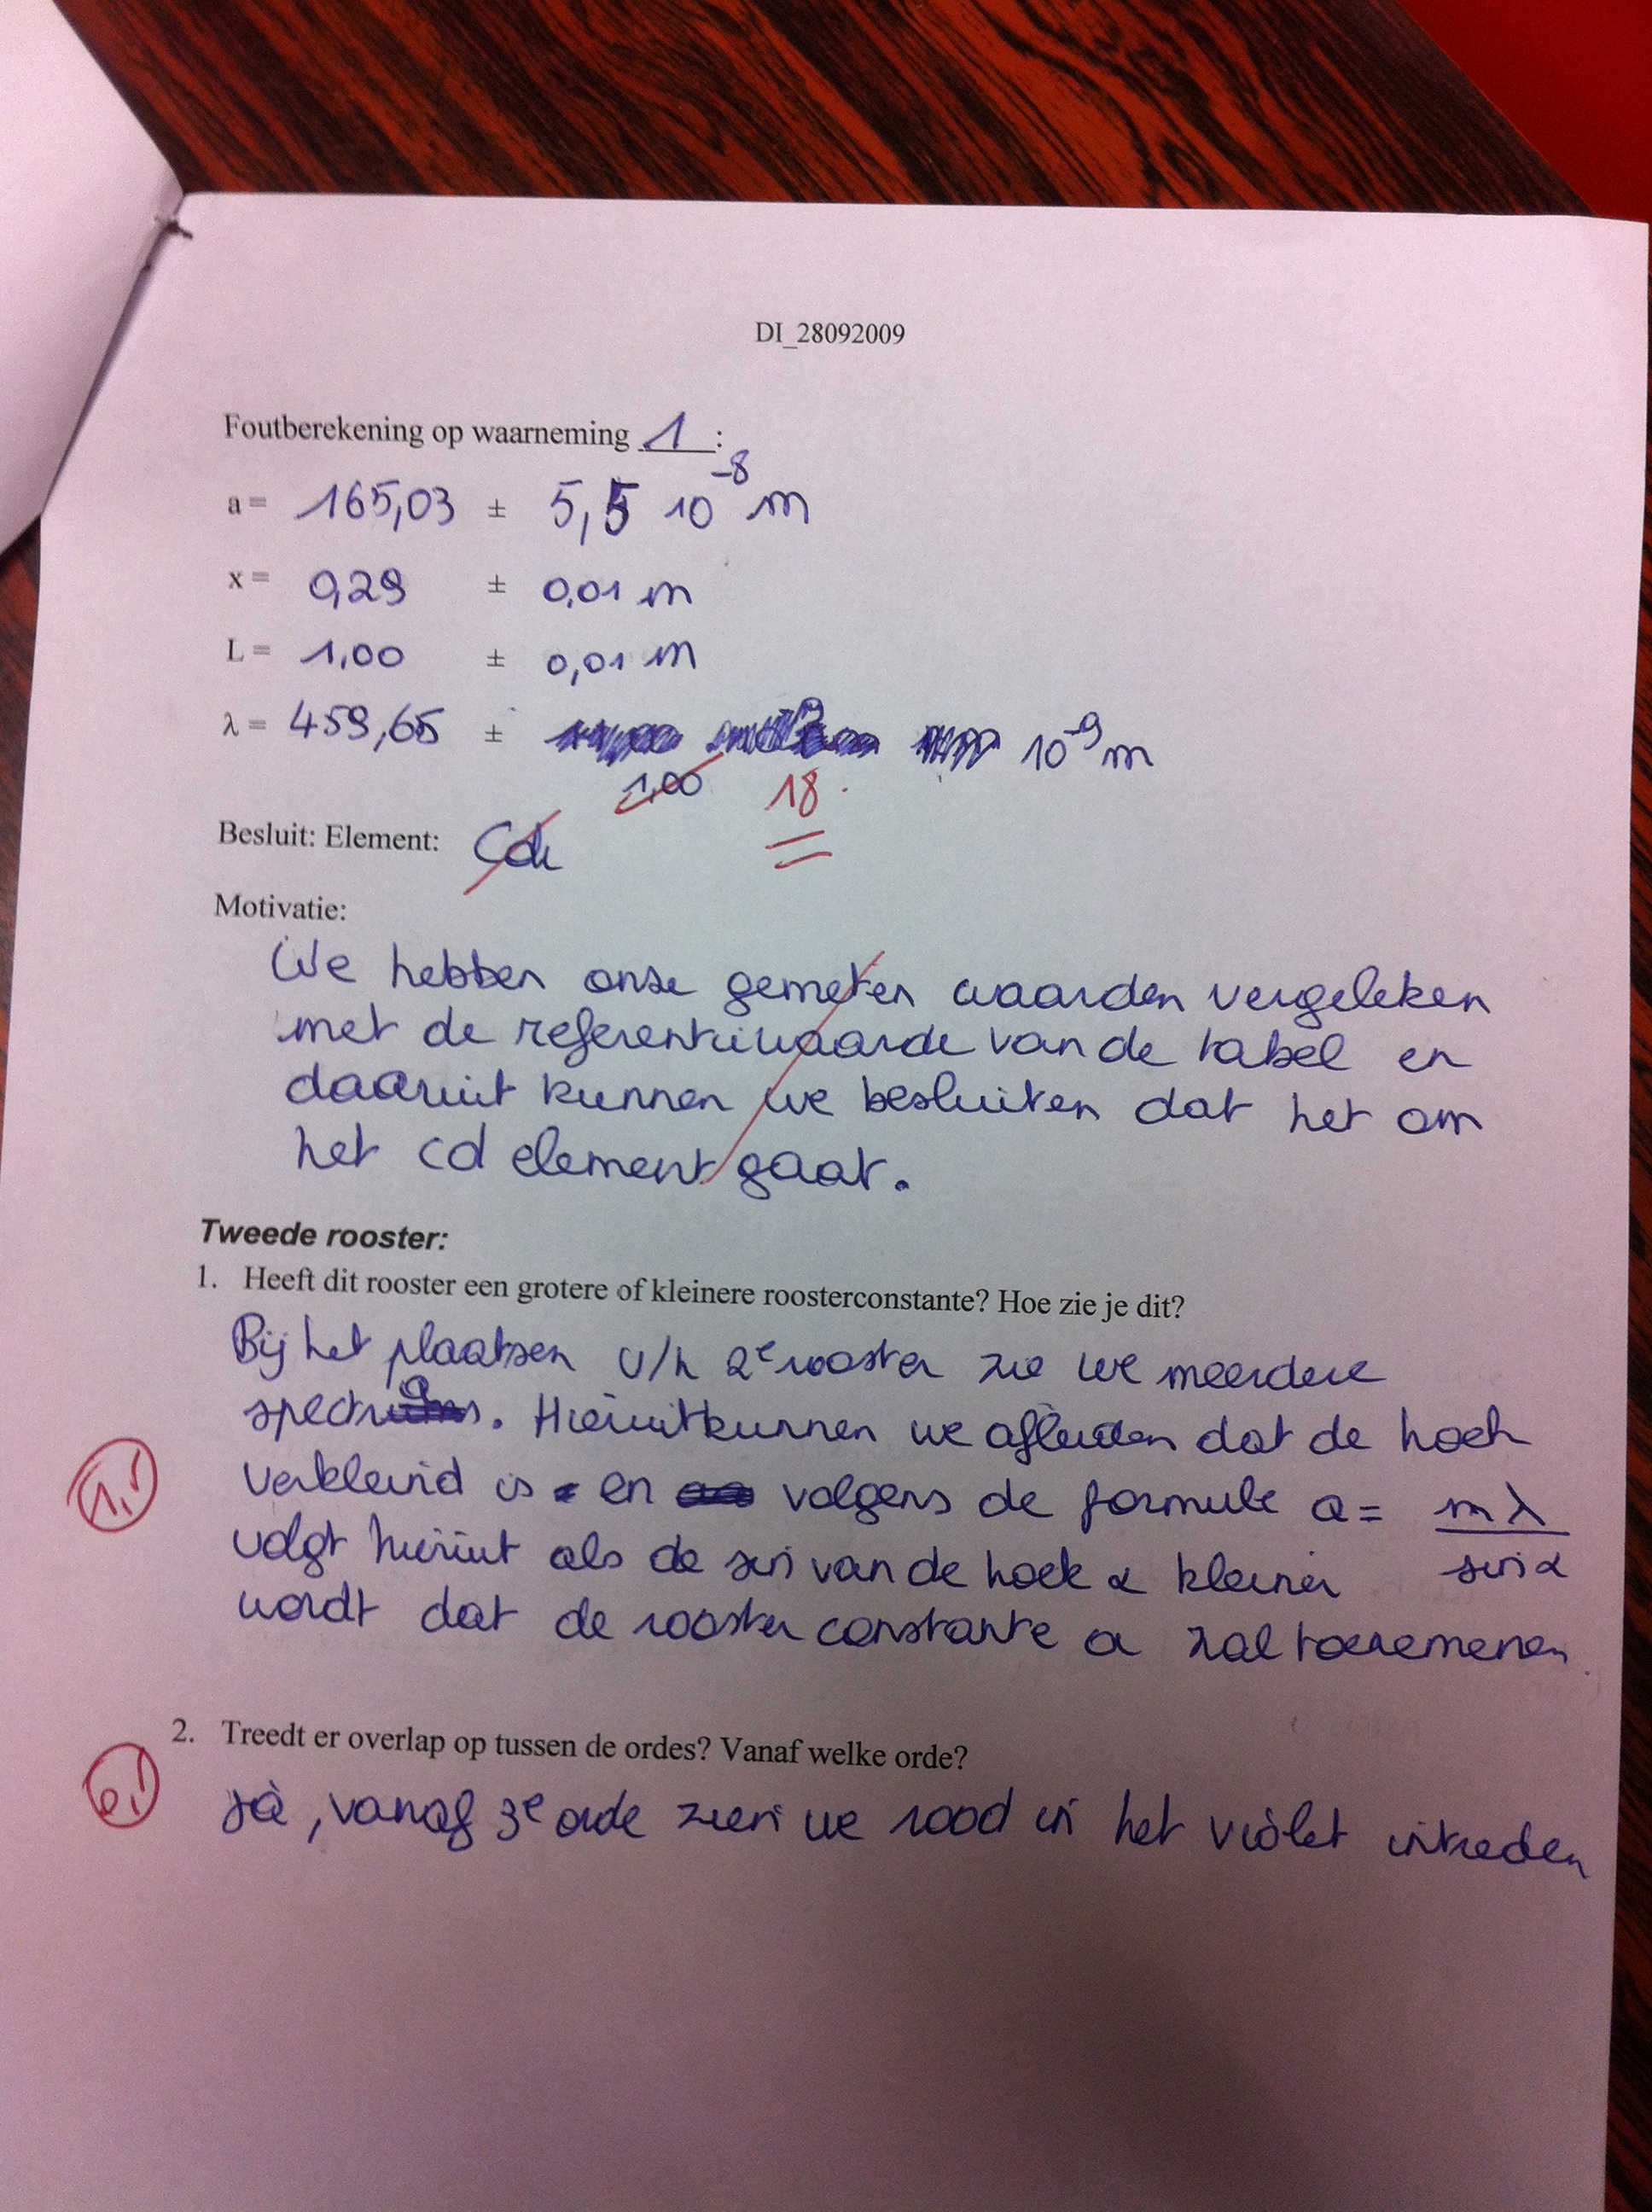 DI_28092009
Foutberekening op waarneming 1 :
a = 165,03 ± 5,5 10^-8 m
x = 0,29 ± 0,01 m
L = 1,00 ± 0,01 m
λ = 459,65 ± 10^-9 m
1,00 18
Besluit: Element: Cd
Motivatie:
We hebben onze gemeten waarden vergeleken
met de referentiewaarde van de tabel en
daaruit kunnen we besluiten dat het om
het cd element gaat.
Tweede rooster:
1. Heeft dit rooster een grotere of kleinere roosterconstante? Hoe zie je dit?
Bij het plaatsen v/h 2e rooster zie we meerdere
spectra. Hieruit kunnen we afleiden dat de hoek
verkleind is en volgens de formule a = mλ / sin α
volgt hieruit als de sin van de hoek α kleiner
wordt dat de rooster constante a zal toenemen
2. Treedt er overlap op tussen de ordes? Vanaf welke orde?
Ja, vanaf 3e orde zien we rood in het violet intreden